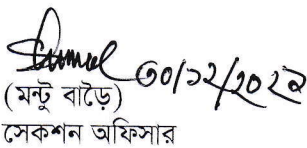 ৩০/১২/২০২১
(মন্টু বাড়ৈ)
সেকশন অফিসার